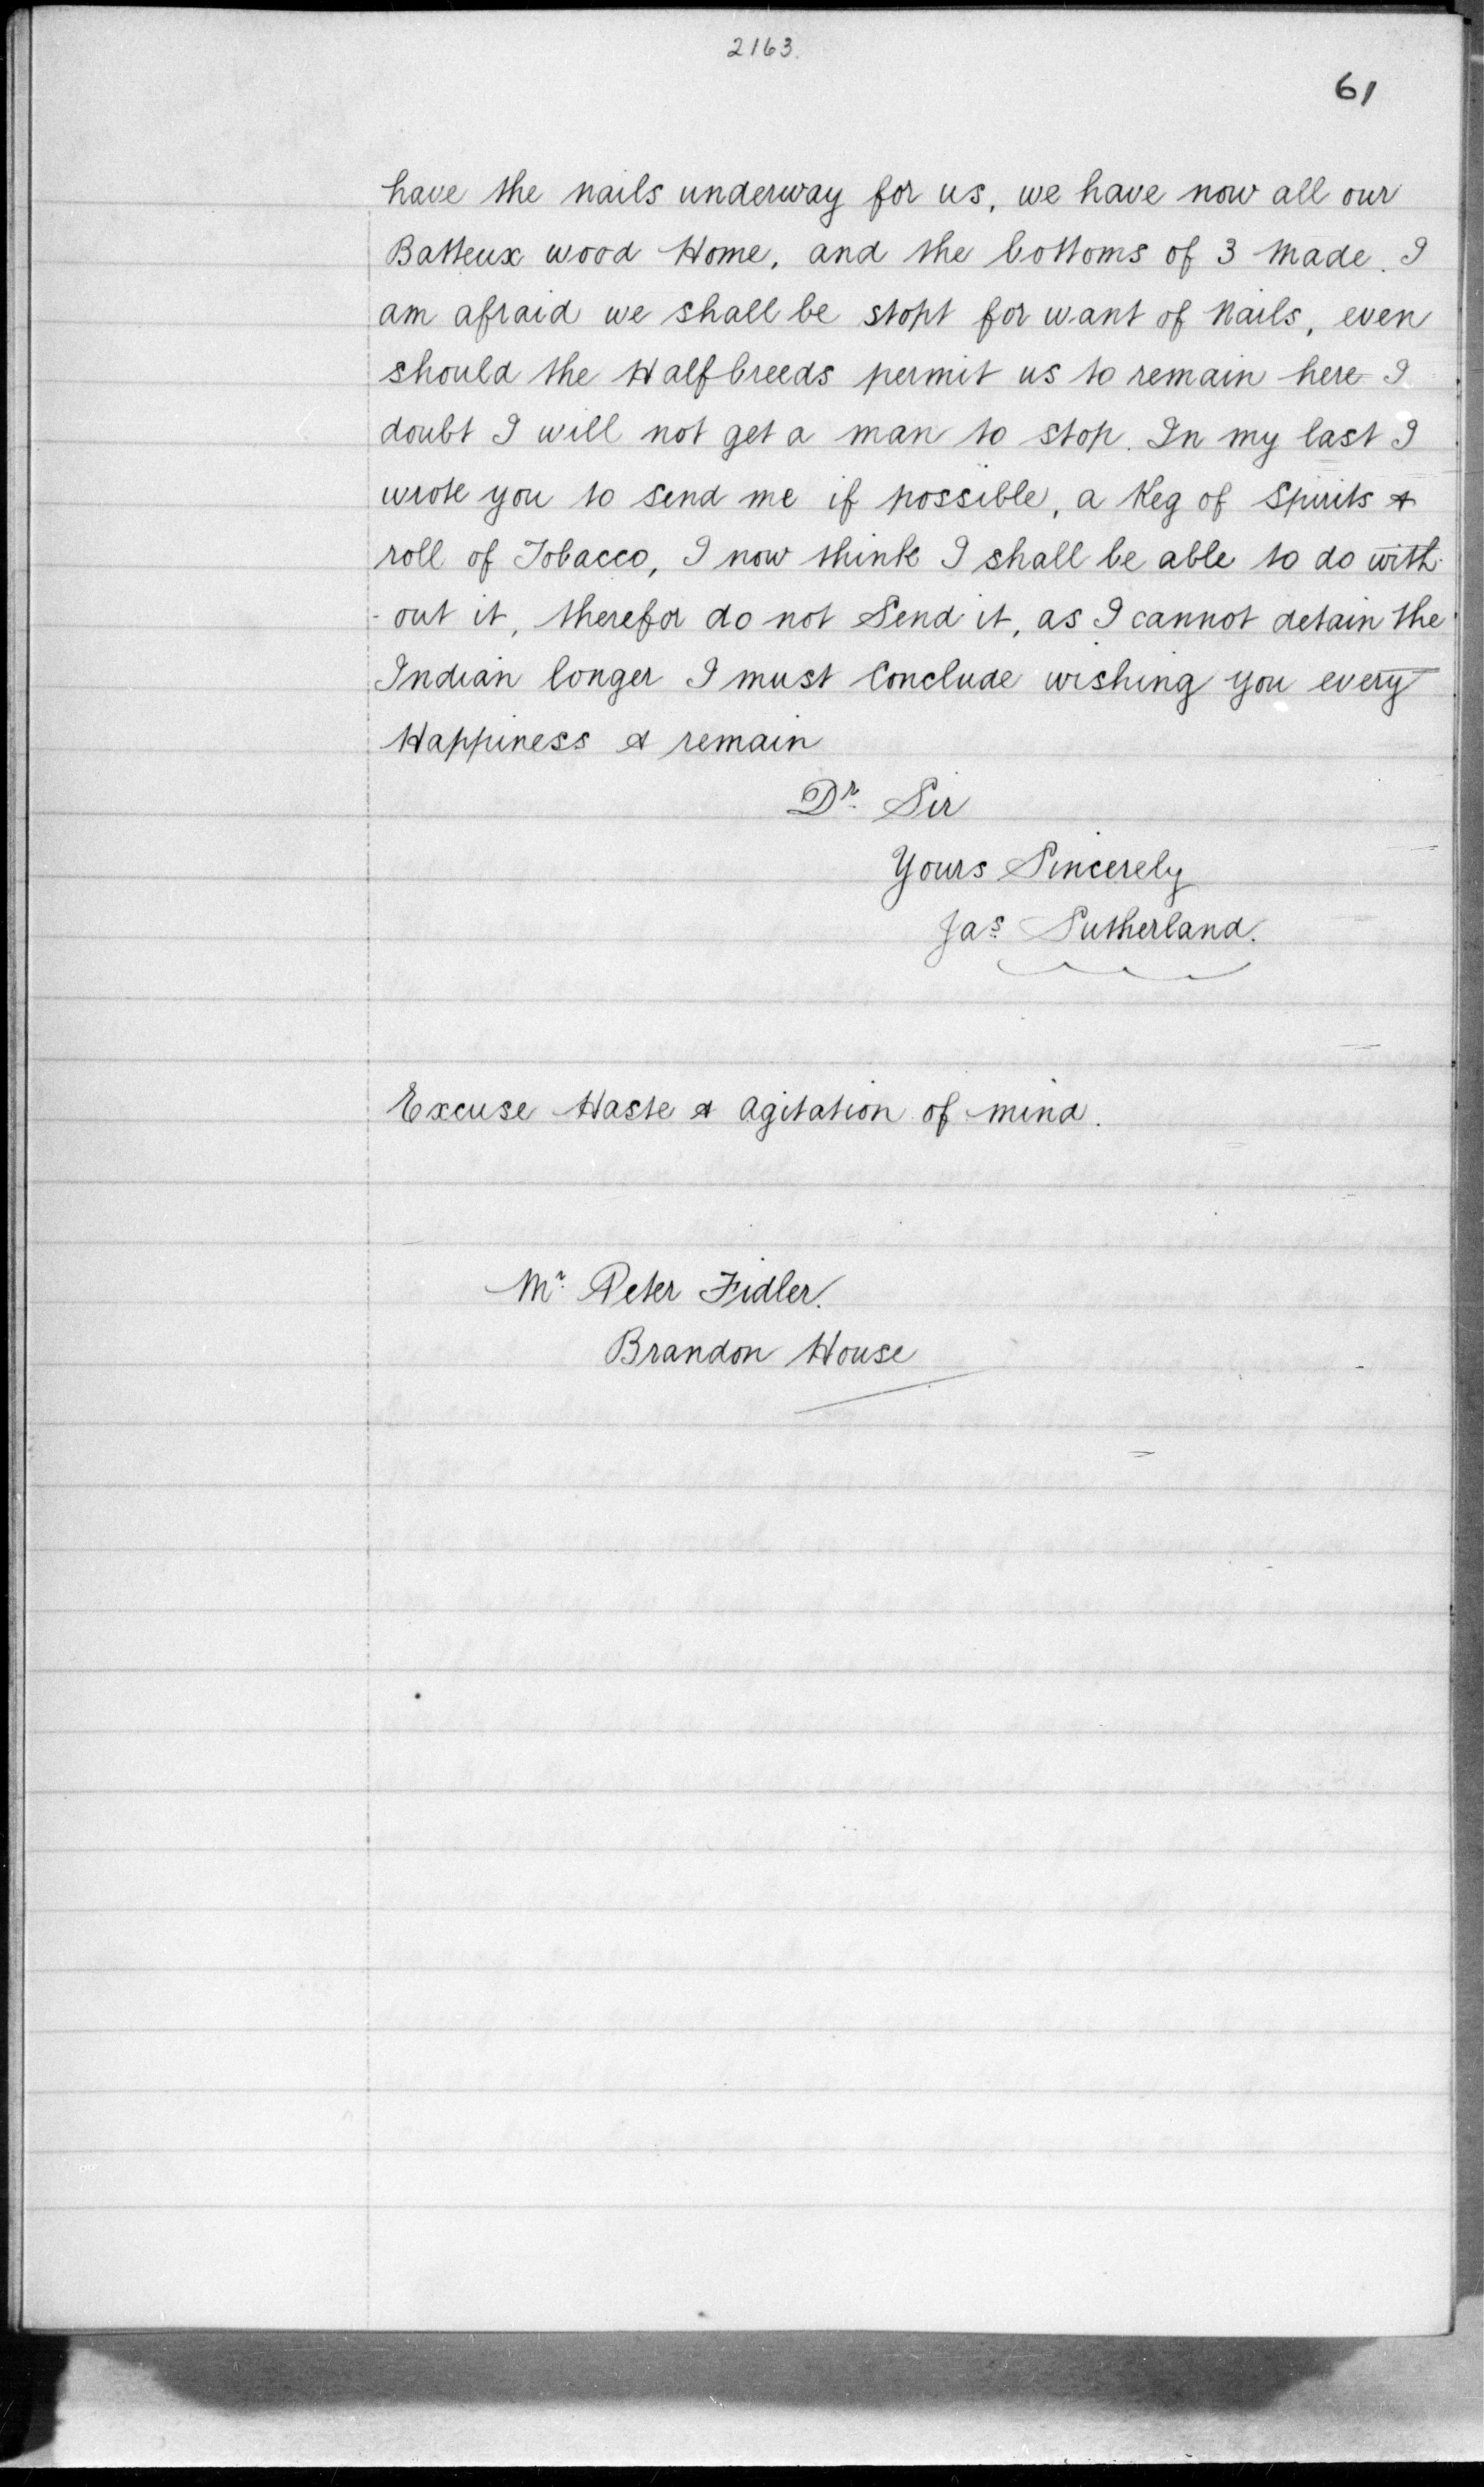 2163.
61
have the nails underway for us, we have now all our
Batteux wood Home, and the bottoms of 3 made. I
am afraid we shall be stopt for want of Nails, even
should the Halfbreeds permit us to remain here I
doubt I will not get a man to stop. In my last I
wrote you to send me if possible, a Keg of Spirits &
roll of Tobacco, I now think I shall be able to do with-
-out it, therefor do not Send it, as I cannot detain the
Indian longer I must Conclude wishing you every
Happiness & remain
Dr. Sir
Yours Sincerely
Jas. Sutherland.
Excuse Haste & agitation of mind.
Mr. Peter Fidler.
Brandon House